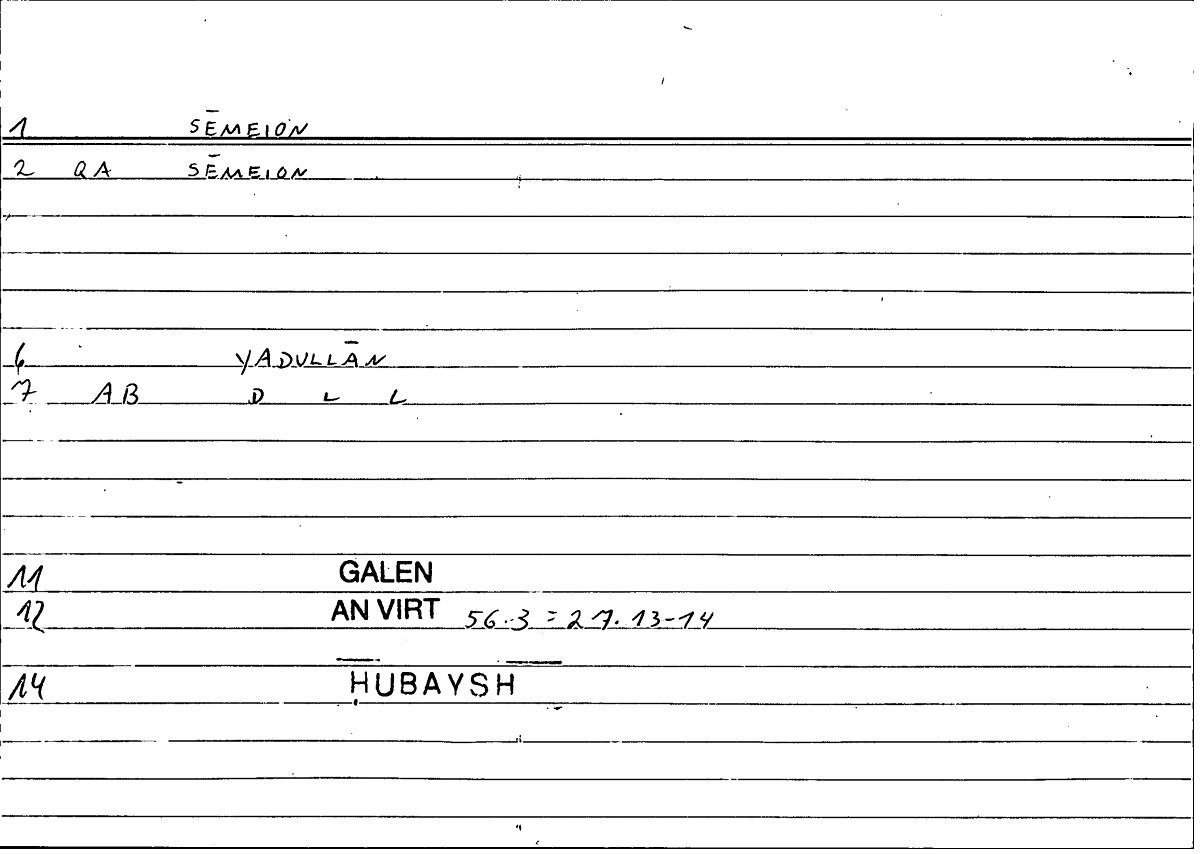 1 SĒMEION
2 QA SĒMEION
6 YADULLĀN
7 AB D L L
11 GALEN
12 AN VIRT 56.3 = 27.13-14
14 ḤUBAYSH